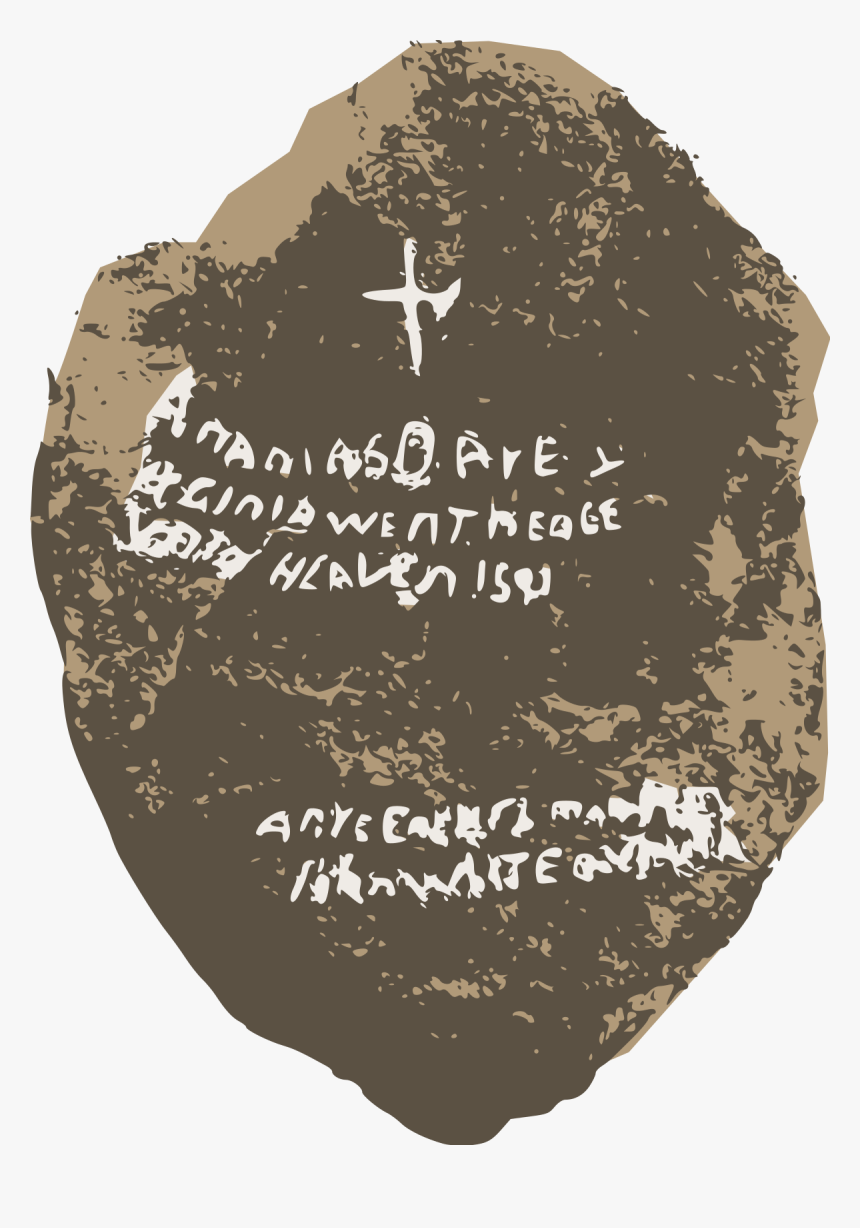 ANANIAS DARE Y
VIRGINIA WENT HENCE
VNTO HEAVEN 1591
ANYE ENGLISHMAN
IOHN WHITE